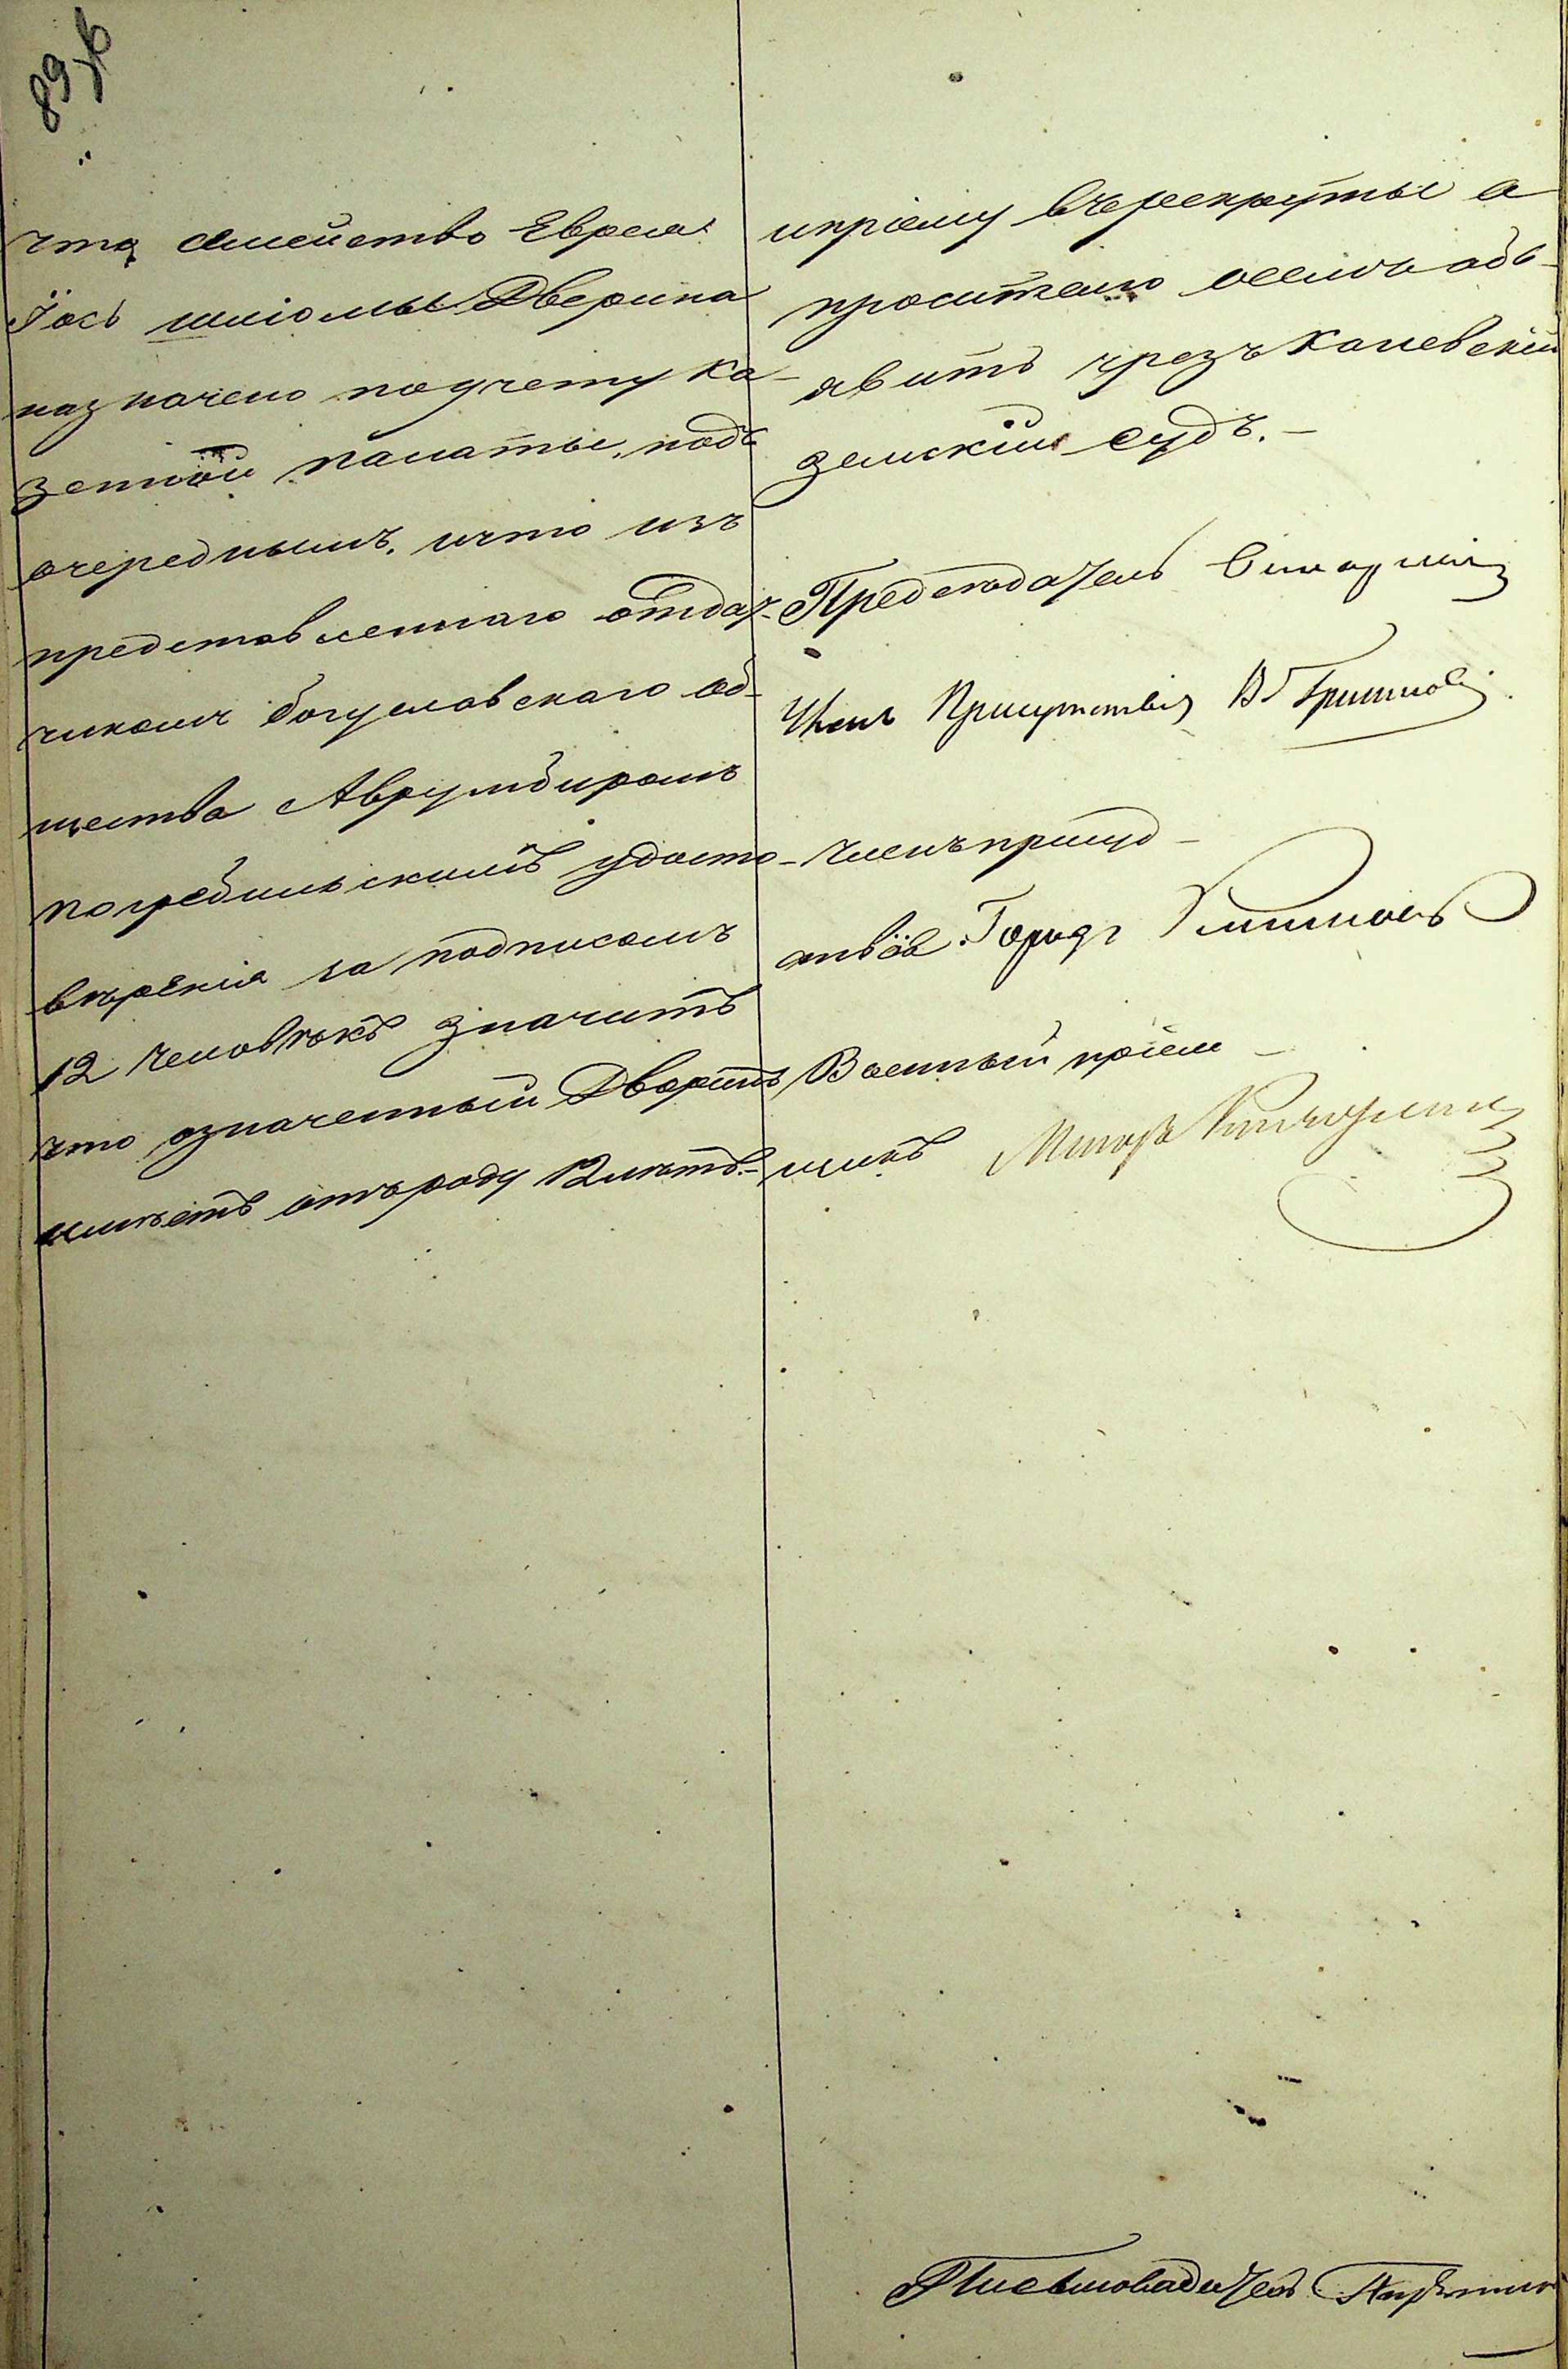 89 об
что семейство Еврея
Іось шліомы Дверина
назначено поучету Ка-
зенной палаты, подъ
очереднымъ, ичто изъ
представленнаго отдат-
чикомъ богуславскаго об-
щества Аврумбиромъ
погребинскимъ удосто-
вѣренія за подписомъ
12 человѣкъ значитъ
что означенный Дверинъ
имѣетъ отъроду 12лѣтъ.-
ипріему врекруты а
просителю оемъ объ-
явить чрезъ Каневскій
земскій судъ.-
Предсѣдатель
Членъ Присутствія
Членъприсуд-
ствія Город
Военный пріем-
щикъ Маіоръ
Письмоводитель